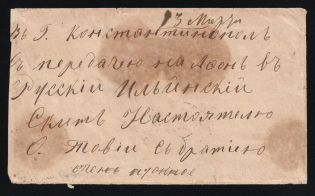 3 Марта
Въ Г. Константинополь
Съ передачею на Афонъ въ
Русскій Ильинскій
Скитъ Настоятелю
О. Товіи съ братіею
очень нужное